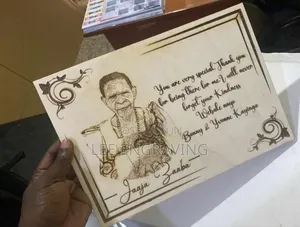 You are very special. Thank you
for being there for me I will never
forget your Kindness
Webale nnyo
Benny & Yvonne Kayinga
Jaaja Zaabu